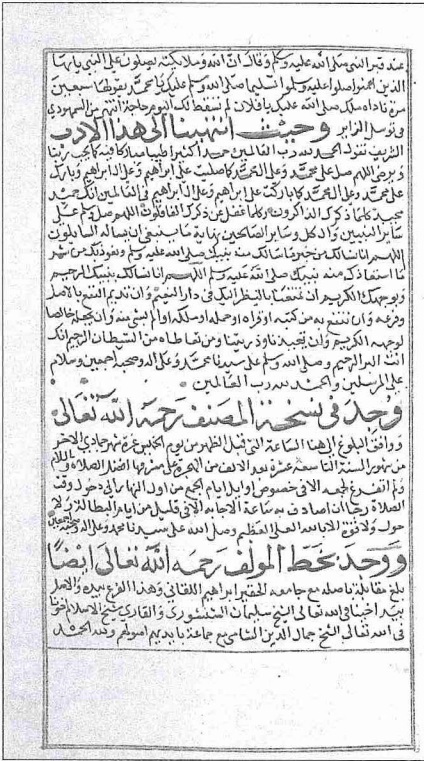 عند قبر النبي صلى الله عليه وسلم وقال ان الله وملايكته يصلون على النبي يايها
الذين امنوا صلوا عليه وسلموا تسليما صلى الله وسلم عليك يا محمد يقولها سبعين
مرة ناداه ملك صلى الله عليك يا فلان لم تسقط لك اليوم حاجة انتهى من السمهودي
في توسل الزاير وحيث انتهينا الى هذا الادب
الشريف نقول الحمد لله رب العالمين حمدا كثيرا طيبا مباركا فيه كما يحب ربنا
ويرضى اللهم صل على محمد وعلى ال محمد كما صليت على ابراهيم وعلى ال ابراهيم وبارك
على محمد وعلى ال محمد كما باركت على ابراهيم وعلى ال ابراهيم في العالمين انك حميد
مجيد كلما ذكرك الذاكرون وكلما غفل عن ذكرك الغافلون اللهم صل وسلم على
ساير النبيين وال كل وساير الصالحين نهاية ما ينبغي ان يساله السايلون
اللهم انا نسالك من خير ما سالك منه نبيك صلى الله عليه وسلم ونعوذ بك من شر
ما استعاذك منه نبيك صلى الله عليه وسلم اللهم انا نسالك بنبيك الرحيم
وبوجهك الكريم ان تمتعنا بالنظر اليك في دار النعيم وان تديم النفع بالاصل
وفرعه وان تنفع به من كتبه او قراه او حمله او سلكه او الم بشي منه وان يجعله خالصا
لوجهه الكريم وان يعيذنا وذريتنا ومن تعاطاه من الشيطان الرجيم انك
انت البر الرحيم وصلى الله وسلم على سيدنا محمد وعلى اله وصحبه اجمعين وسلام
على المرسلين والحمد لله رب العالمين
وجد في نسخة المصنف رحمة الله تعالى
ووافق البلوغ الى هنا الساعة التي قبل الظهر من يوم الخميس غرة شهر جمادى الاخر
من شهور السنة التاسعة عشرة بعد الالف من الهجرة على مشرفها افضل الصلاة والسلام
ولم اتفرغ لجمعه الا في خصوص اوايل ايام الجمع من اول النهار الى دخول وقت
الصلاة رجا ان اصادف به ساعة الاجابه الا في قليل من ايام البطالة ولا
حول ولا قوة الا بالله العلي العظيم وصلى الله على سيدنا محمد وعلى اله وصحبه اجمعين
ووجد بخط المولف رحمه الله تعالى ايضا
بلغ مقابلة باصله مع جامعه الحقير ابراهيم اللقاني وهذا الفرع بيده والاصل
بيد اخينا في الله تعالى الشيخ سليمان السنشوري والقاري شيخ الاسلام اخونا
في الله تعالى الشيخ جمال الدين الشامي مع جماعة بايديهم اصولهم ولله الحمد